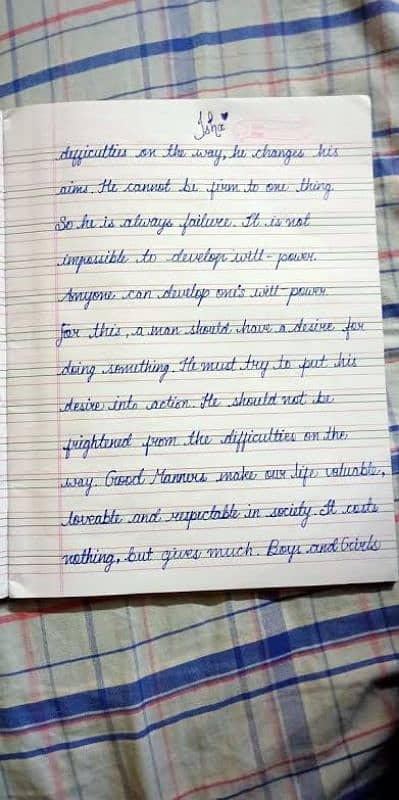 Isha
difficulties on the way, he changes his
aims. He cannot be firm to one thing.
So he is always failure. It is not
impossible to develop will-power.
Anyone can develop one's will-power.
for this, a man should have a desire for
doing something. He must try to put his
desire into action. He should not be
frightened from the difficulties on the
way. Good Manners make our life valuable,
loveable and respectable in society. It costs
nothing, but gives much. Boys and Girls